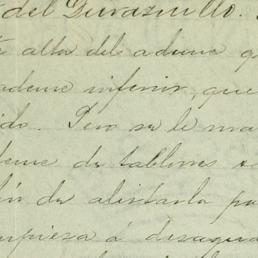 del Durasnillo.
alta del ademe q
ademe inferior, que
ido. Pero se le ma
deme de tablones
de alistarla pa
mpieza á desagua